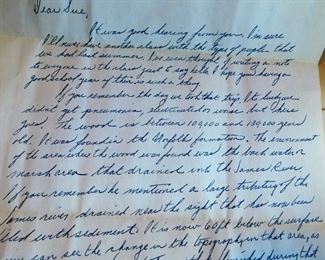 Dear Sue,
It was good hearing from you. I'm sure
I'll never have another class with the type of people that
we had last summer. I've even thought of writing a note
to everyone in the class just to say hello. I hope you having a
good school year if there is such a thing.
If you remember the day we took that trip, It's
didn't get pneumonia, electrocuted, but here
goes. The wood is between 100,000 and 130,000 year
old. It was found in the Norfolk formation. The environment
of the area when the wood was found was the back water
marsh area that drained into the James River.
If you remember he mentioned a large tributary of the
James river drained near the sight that has now been
filled with sediment. It is now 60 ft below the surface
can see the change in the topography in that area, as
during that